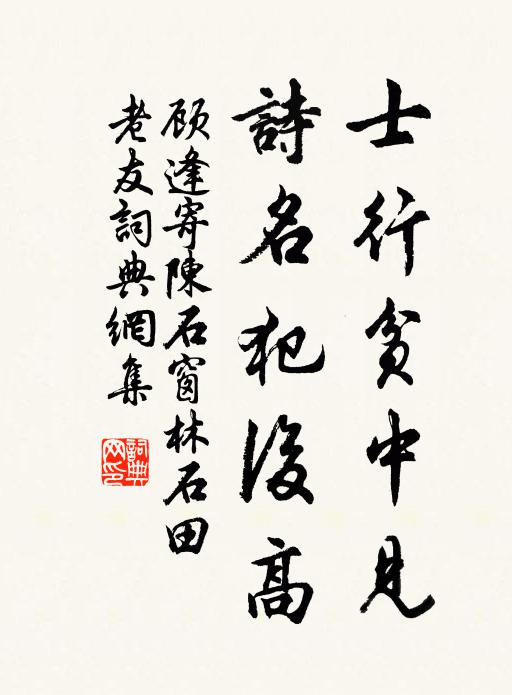 士行貧中見
詩名犯後高
顾逢寄陳石窗林石田
老友詞典網集
詞典網印